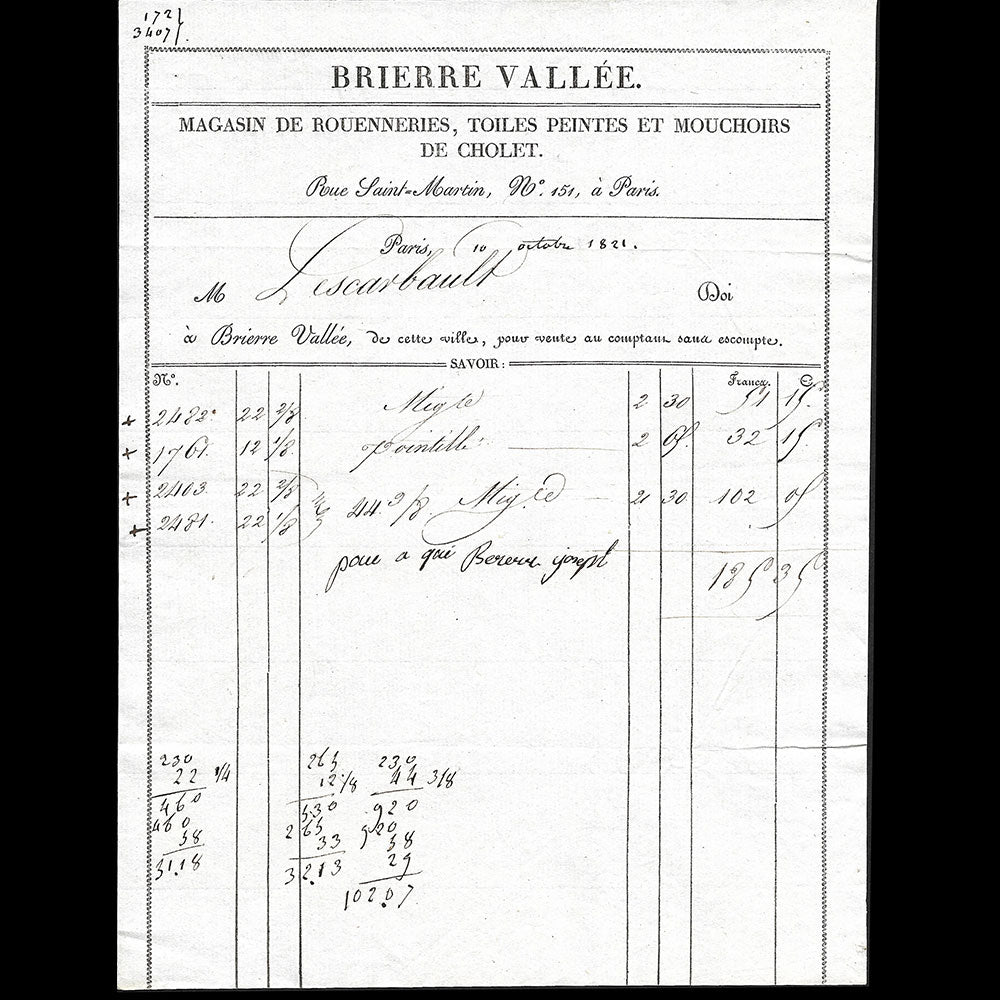 172
3407
BRIERRE VALLÉE.
MAGASIN DE ROUENNERIES, TOILES PEINTES ET MOUCHOIRS
DE CHOLET.
Rue Saint-Martin, N°. 151, à Paris.
Paris, 10 octobre 1821.
M Lescarbault Doi
à Brierre Vallée, de cette ville, pour vente au comptant sans escompte.
SAVOIR:
N°. Francs. C.
+ 2482. 22 2/8 2 30 51 15.
+ 1761. 12 1/8 Pointillé 2 65. 32 15
+ 2403 22 2/8
+ 2481. 22 1/8 44 3/8 2 30 102 05
185 35
230 265 230
22 1/4 12 1/8 44 3/8
460 530 920
460 265 920
58 33 58
51.18 32.13 29
102.07